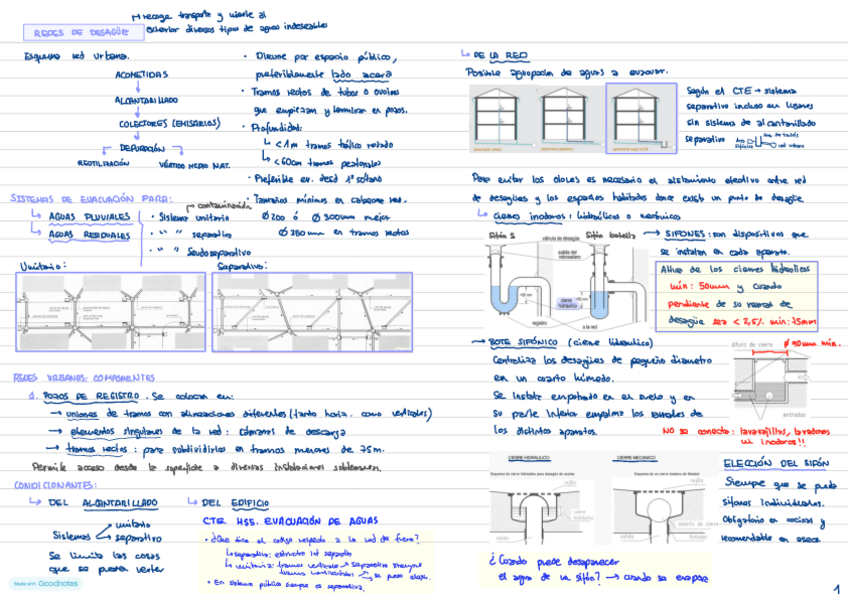 ↦ recoge, transporta y vierte al
REDES DE DESAGÜE
exterior diversos tipos de aguas indeseables
Esquema red urbana.
ACOMETIDAS
ALCANTARILLADO
COLECTORES (EMISARIOS)
DEPURACIÓN
REUTILIZACIÓN
VERTIDO MEDIO NAT.
• Discurre por espacio público,
preferiblemente lado acera
• Tramos rectos de tubos u ovoides
que empiezan y terminan en pozos.
• Profundidad:
↳ <1m tramos tráfico rodado
↳ <60cm tramos peatonales
• Preferible ev. desd 1º sótano
• Tamaños mínimos en cabecera red.
Ø 200 ó Ø 300mm mejor
Ø 350mm en tramos rectos
SISTEMAS DE EVACUACIÓN PARA:
↳ AGUAS PLUVIALES
↳ AGUAS RESIDUALES
contaminación
• Sistema unitario
• " " separativo
• " " Seudoseparativo
Unitario:
Separativo:
REDES URBANAS: COMPONENTES
1. POZOS DE REGISTRO. Se colocan en:
→ uniones de tramos con alineaciones diferentes (tanto horiz. como verticales)
→ elementos singulares de la red: cámaras de descarga
→ tramos rectos: para subdividirlos en tramos menores de 75m.
Permite acceso desde la superficie a diversas instalaciones subterráneas.
CONDICIONANTES:
↳ DEL ALCANTARILLADO
Sistemas
unitario
separativo
Se limita las cosas
que se pueden verter
↳ DEL EDIFICIO
CTE. HS5. EVACUACIÓN DE AGUAS
• ¿Que dice el código respecto a la red de fuera?
↳ separativo: estructura int separativa
↳ unitaria: tramos verticales → separativo siempre
tramos horizontales → se puede elegir.
• En sistema público siempre es separativa.
↳ DE LA RED
Posible agrupación de aguas a evacuar.
Según el CTE → sistema
separativo incluso en lugares
sin sistema de alcantarillado
separativo
Para evitar los olores es necesario el aislamiento efectivo entre red
de desagües y los espacios habitados donde exista un punto de desagüe
↳ cierres inodoros: hidráulicos o mecánicos
Sifón S
Sifón botella
válvula de desagüe
salida del
rebosadero
cierre
hidráulico
registro
a la red
→ SIFONES: son dispositivos que
se instalan en cada aparato.
Altura de los cierres hidráulicos
mín: 50mm y cuando
pendiente de su ramal de
desagüe sea < 2,5% mín: 75mm
→ BOTE SIFÓNICO (cierre hidráulico)
Centraliza los desagües de pequeño diámetro
en un cuarto húmedo.
Se instala empotrado en el suelo y en
su parte inferior empalma los ramales de
los distintos aparatos.
altura de cierre
Ø 90mm mín.
entradas
NO se conecta: lavavajillas, lavadoras
ni inodoros!!
CIERRE HIDRAULICO
CIERRE MECANICO
rejilla
rejilla
cierre
hidráulico
salida
asiento de cierre
flotador
salida
ELECCIÓN DEL SIFÓN
Siempre que se pueda
sifones individuales.
Obligatorio en cocinas y
recomendable en aseos
¿Cuando puede desaparecer
el agua de un sifón? → cuando se evapora
Made with Goodnotes
1